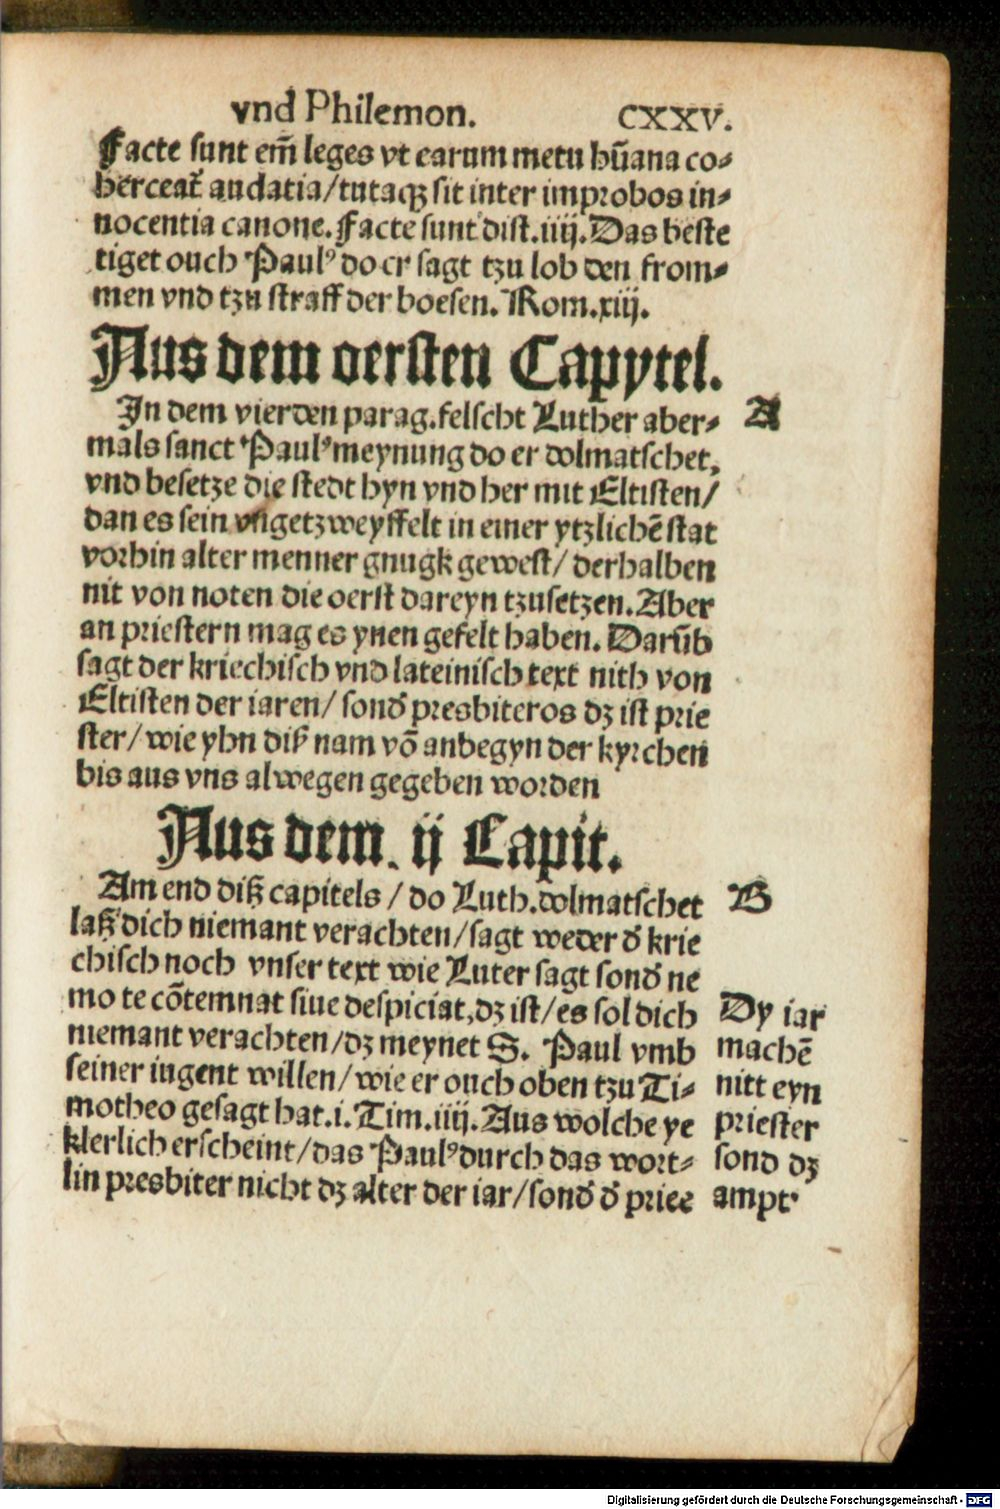 vnd Philemon. CXXV.
Facte sunt em̃ leges vt earum metu hũana co⸗
herceat᷑ audatia/tutaqꝫ sit inter improbos in⸗
nocentia canone. Facte sunt dist.iiij. Das beste
tiget ouch Paulꝰ do er sagt tzu lob den from⸗
men vnd tzu straff der boesen. Rom.xiij.
Aus dem oersten Capytel.
In dem vierden parag.felscht Luther aber⸗ A
mals sanct Paulꝰ meynung do er dolmatschet,
vnd besetze die stedt hyn vnd her mit Eltisten/
dan es sein vngetzweyffelt in einer ytzlichẽ stat
vorhin alter menner gnugk gewest/ derhalben
nit von noten die oerst dareyn tzusetzen. Aber
an priestern mag es ynen gefelt haben. Darũb
sagt der kriechisch vnd lateinisch text nith von
Eltisten der iaren/ sond̕ presbiteros dꝫ ist prie
ster/ wie yhn diß nam võ anbegyn der kyrchen
bis aus vns alwegen gegeben worden
Aus dem. ij Capit.
Am end diß capitels /do Luth.dolmatschet B
laß dich niemant verachten/sagt weder d̕ krie
chisch noch vnser text wie Luter sagt sond̕ ne
mo te cõtemnat siue despiciat,dꝫ ist/es sol dich
niemant verachten/dꝫ meynet S. Paul vmb
seiner iugent willen/wie er ouch oben tzu Ti⸗
motheo gesagt hat.i.Tim.iiij.Aus wolche ye
klerlich erscheint/das Paulꝰ durch das wort⸗
lin presbiter nicht dꝫ alter der iar/sond̕ d̕ priee
Dy iar
machẽ
nitt eyn
priester
sond dꝫ
ampt·
Digitalisierung gefördert durch die Deutsche Forschungsgemeinschaft - DFG